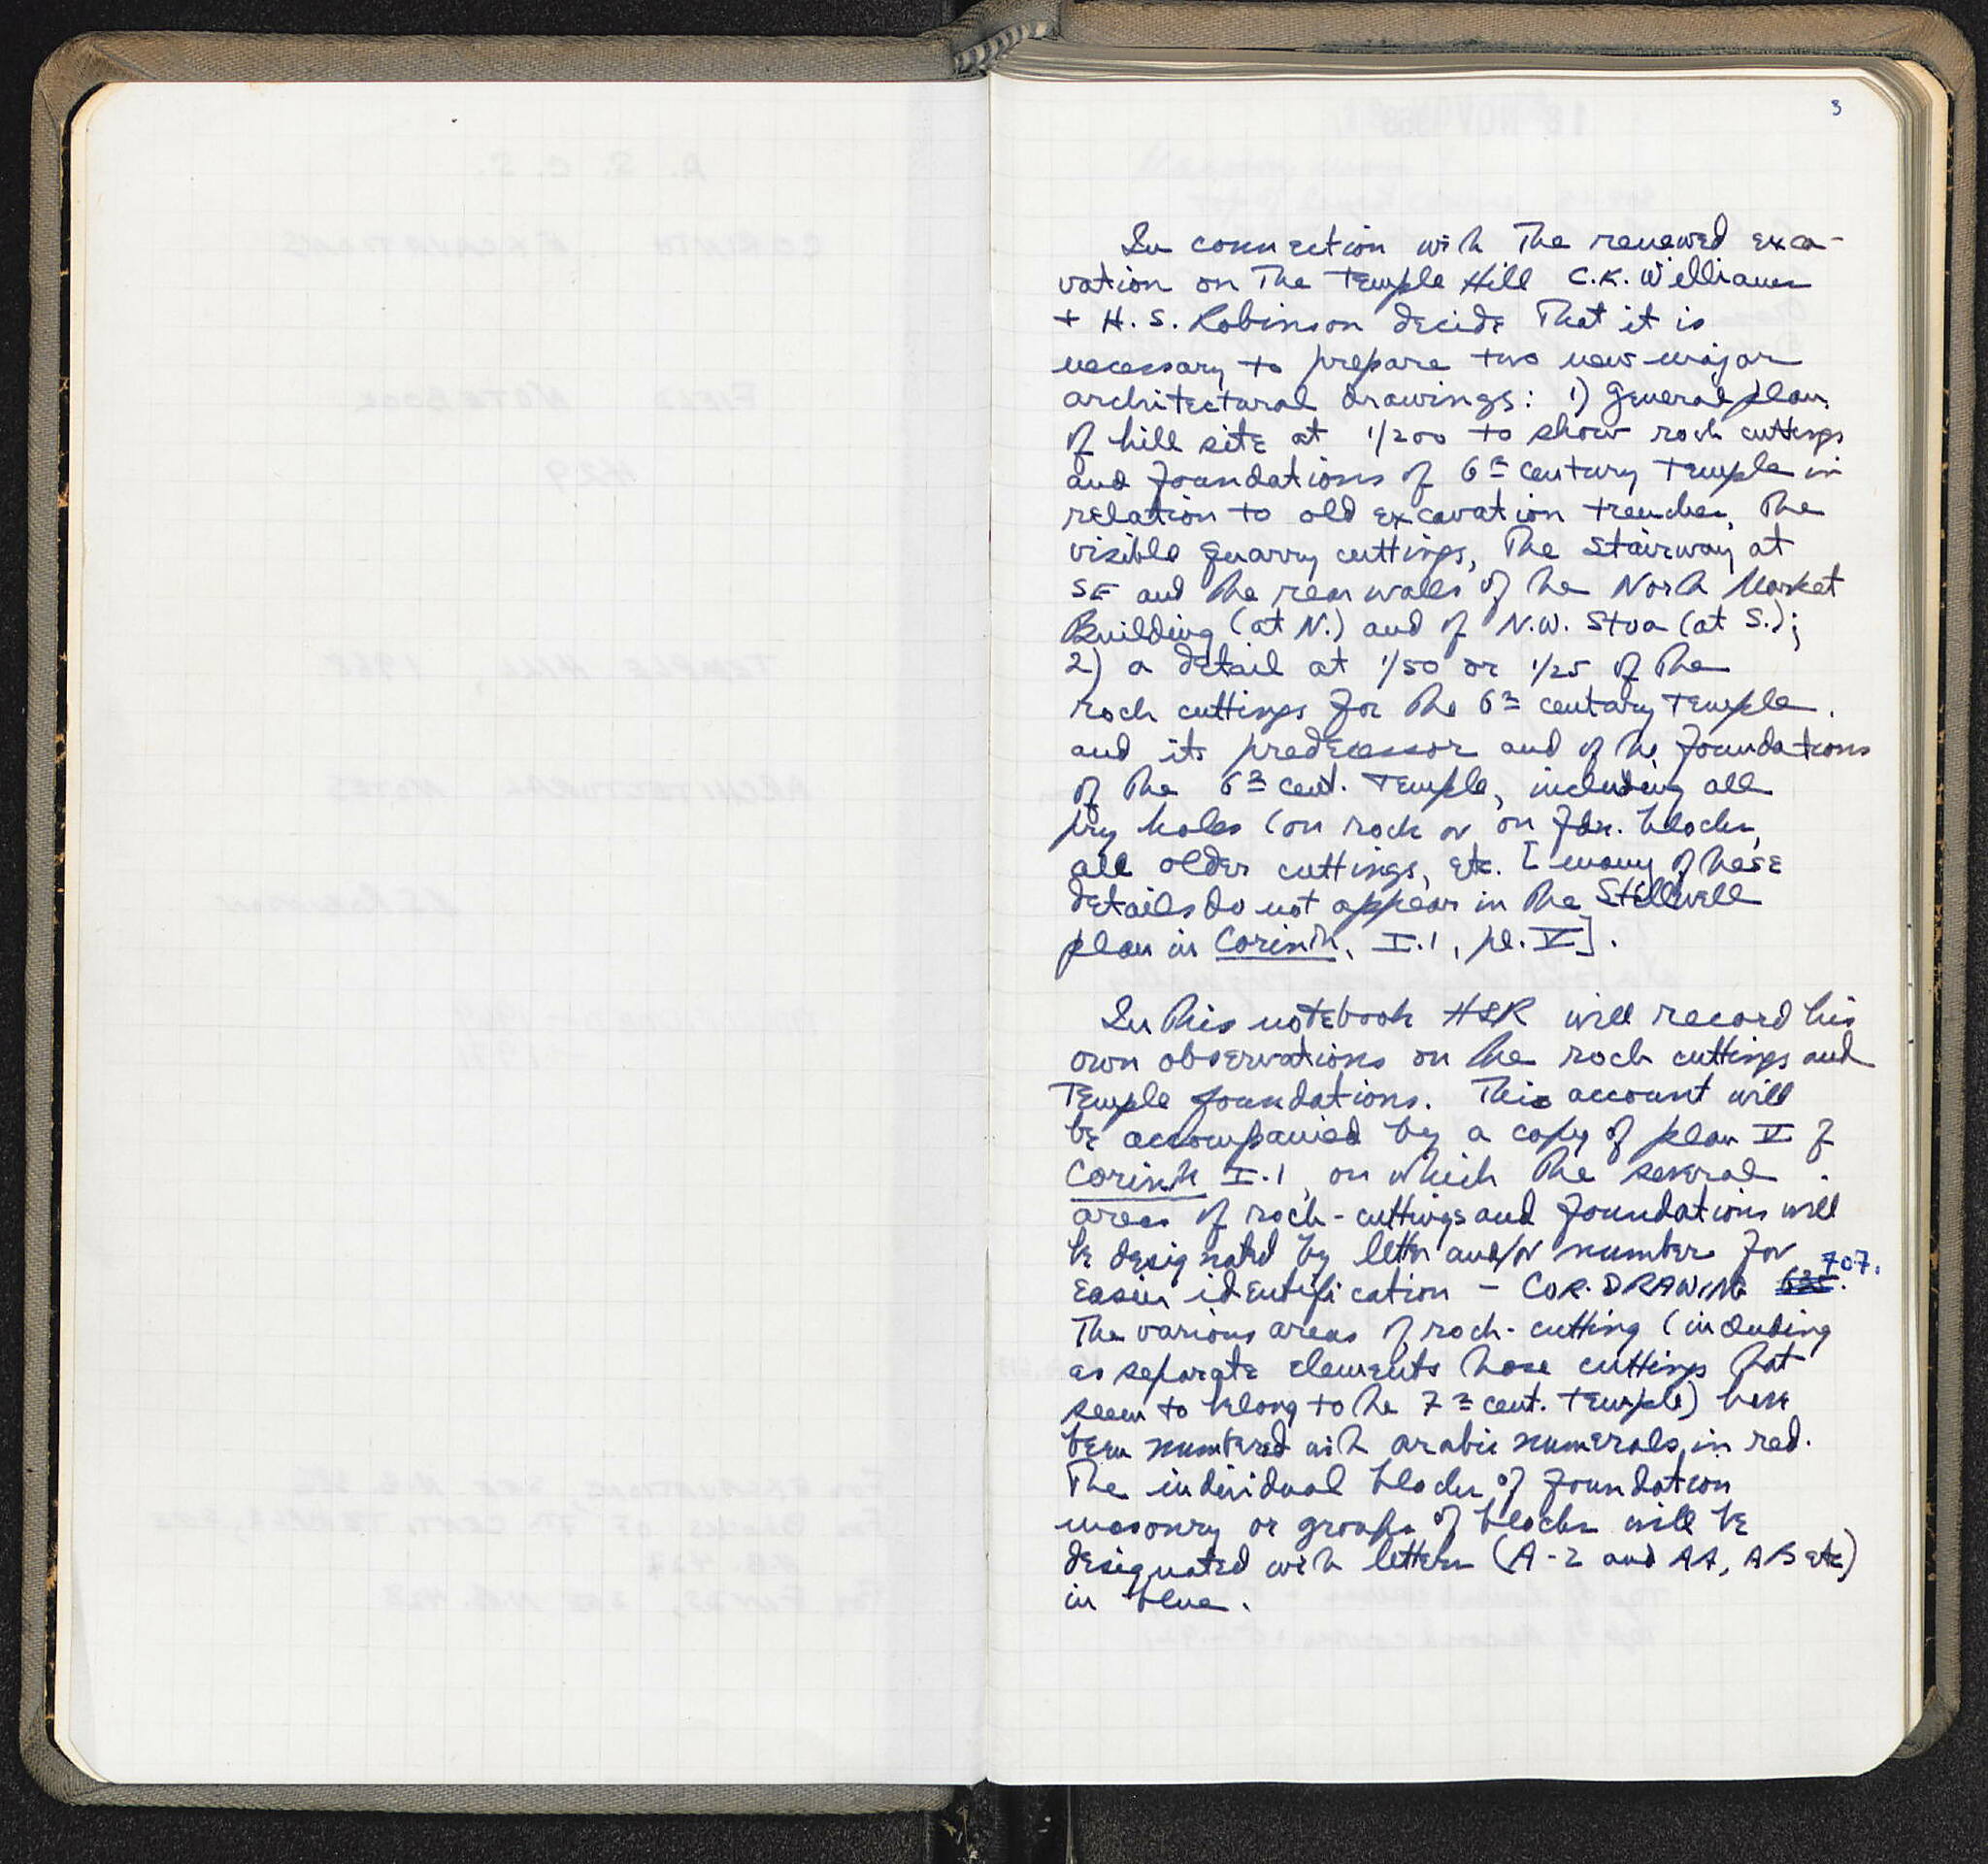 3
In connection with the renewed exca-
vation on the Temple Hill C.K. Williams
+ H. S. Robinson decide that it is
necessary to prepare two new major
architectural drawings: 1) general plan
of hill site at 1/200 to show rock cuttings
and foundations of 6th century temple in
relation to old excavation trenches, the
visible quarry cuttings, the stairway at
SE and the rear walls of the North Market
Building (at N.) and of N.W. Stoa (at S.);
2) a detail at 1/50 or 1/25 of the
rock cuttings for the 6th century temple
and its predecessor and of the foundations
of the 6th cent. temple, including all
pry holes (on rock or on fdn. blocks,
all older cuttings, etc. [many of these
details do not appear in the Stillwell
plan in Corinth, I.1, pl. V].
In this notebook HSR will record his
own observations on the rock cuttings and
temple foundations. This account will
be accompanied by a copy of plan V of
Corinth I.1, on which the several
areas of rock-cuttings and foundations will
be designated by letter and/or number for
easier identification - COR. DRAWING 707.
The various areas of rock-cutting (including
as separate elements those cuttings that
seem to belong to the 7th cent. temple) have
been numbered with arabic numerals, in red.
The individual blocks of foundation
masonry or groups of blocks will be
designated with letters (A-Z and AA, AB etc)
in blue.